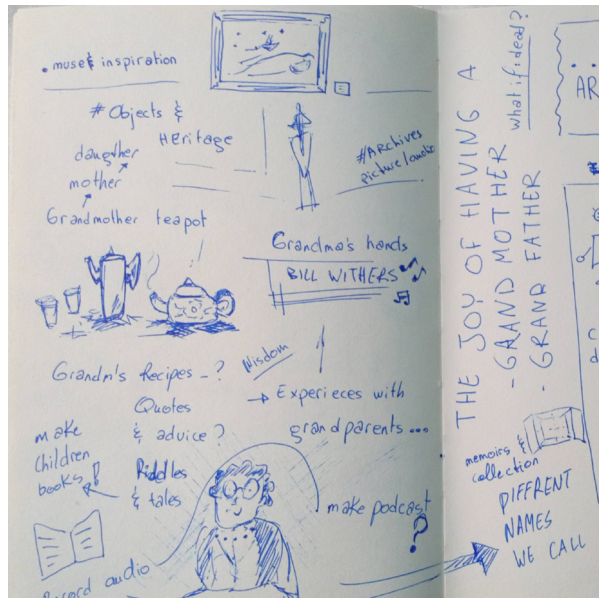 . muse & inspiration
# Objects &
Heritage
daughter
mother
Grandmother teapot
#ARCHives
picture/
Grandma's hands
BILL WITHERS
Wisdom
Grandm's Recipes - ?
Quotes
& advice ?
→ Experieces with
grandparents ...
make
children
books !
Riddles
& tales
make podcast
?
Record audio
THE JOY OF HAVING A
- GRAND MOTHER
- GRAND FATHER
what if: dead?
memoirs &
collection
DIFFRENT
NAMES
WE CALL
AR